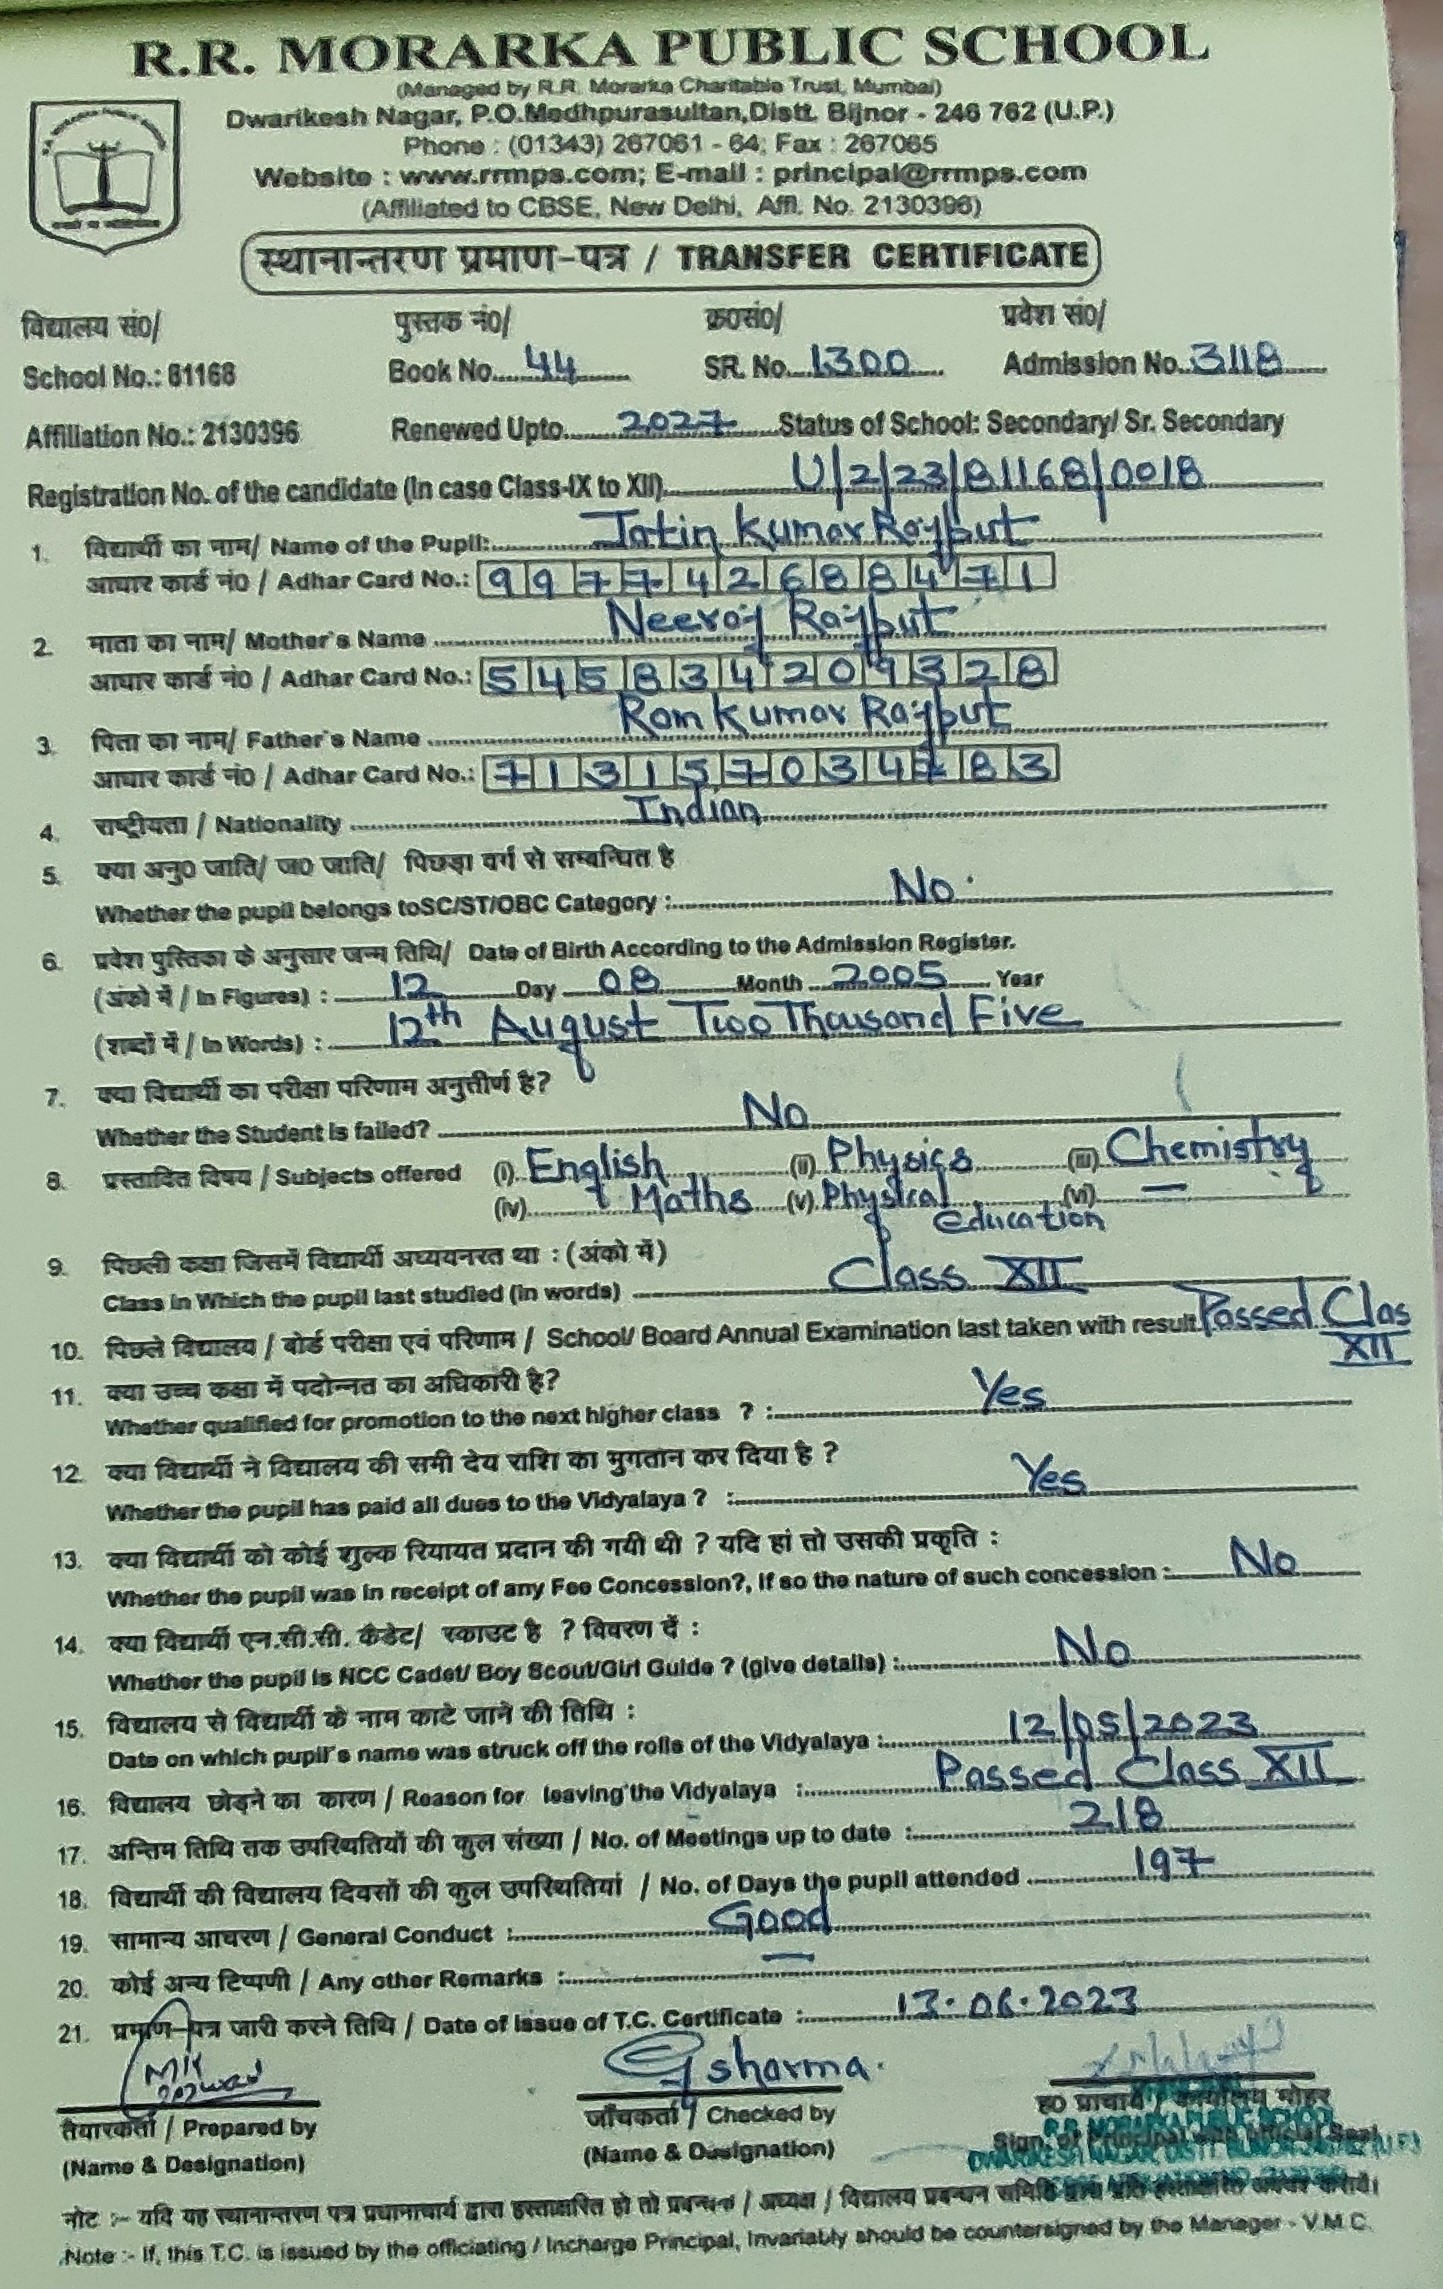 R.R. MORARKA PUBLIC SCHOOL
(Managed by R.R. Morarka Charitable Trust, Mumbai)
Dwarikesh Nagar, P.O.Medhpurasultan,Distt. Bijnor - 246 762 (U.P.)
Phone : (01343) 267061 - 64; Fax : 267065
Website : www.rrmps.com; E-mail : principal@rrmps.com
(Affiliated to CBSE, New Delhi, Affl. No. 2130396)
स्थानान्तरण प्रमाण-पत्र / TRANSFER CERTIFICATE
विद्यालय सं0/ पुस्तक नं0/ क्र0सं0/ प्रवेश सं0/
School No.: 81168 Book No. 44 SR. No. 1300 Admission No. 3118
Affiliation No.: 2130396 Renewed Upto 2027 Status of School: Secondary/ Sr. Secondary
Registration No. of the candidate (In case Class-IX to XII) U/2/23/81168/0018
1. विद्यार्थी का नाम/ Name of the Pupil: Jatin Kumar Rajput
आधार कार्ड नं0 / Adhar Card No.: 997742688471
2. माता का नाम/ Mother's Name Neeraj Rajput
आधार कार्ड नं0 / Adhar Card No.: 545834209328
3. पिता का नाम/ Father's Name Ram Kumar Rajput
आधार कार्ड नं0 / Adhar Card No.: 713157034783
4. राष्ट्रीयता / Nationality Indian
5. क्या अनु0 जाति/ ज0 जाति/ पिछड़ा वर्ग से सम्बन्धित है
Whether the pupil belongs toSC/ST/OBC Category : No.
6. प्रवेश पुस्तिका के अनुसार जन्म तिथि/ Date of Birth According to the Admission Register.
(अंको में / In Figures) : 12 Day 08 Month 2005 Year
(शब्दों में / In Words) : 12th August Two Thousand Five
7. क्या विद्यार्थी का परीक्षा परिणाम अनुत्तीर्ण है?
Whether the Student is failed? No
8. प्रस्तावित विषय / Subjects offered (i) English (ii) Physics (iii) Chemistry
(iv) Maths (v) Physical education (vi) —
9. पिछली कक्षा जिसमें विद्यार्थी अध्ययनरत था : (अंको में)
Class in Which the pupil last studied (in words) Class XII
10. पिछले विद्यालय / बोर्ड परीक्षा एवं परिणाम / School/ Board Annual Examination last taken with result Passed Clas XII
11. क्या उच्च कक्षा में पदोन्नत का अधिकारी है?
Whether qualified for promotion to the next higher class ? : Yes
12. क्या विद्यार्थी ने विद्यालय की सभी देय राशि का भुगतान कर दिया है ?
Whether the pupil has paid all dues to the Vidyalaya ? : Yes
13. क्या विद्यार्थी को कोई शुल्क रियायत प्रदान की गयी थी ? यदि हां तो उसकी प्रकृति :
Whether the pupil was in receipt of any Fee Concession?, If so the nature of such concession : No
14. क्या विद्यार्थी एन.सी.सी. कैडेट/ स्काउट है ? विवरण दें :
Whether the pupil is NCC Cadet/ Boy Scout/Girl Guide ? (give details) : No
15. विद्यालय से विद्यार्थी के नाम काटे जाने की तिथि :
Date on which pupil's name was struck off the rolls of the Vidyalaya : 12/05/2023
16. विद्यालय छोड़ने का कारण / Reason for leaving the Vidyalaya : Passed Class XII
17. अन्तिम तिथि तक उपस्थितियों की कुल संख्या / No. of Meetings up to date : 218
18. विद्यार्थी की विद्यालय दिवसों की कुल उपस्थितियां / No. of Days the pupil attended 197
19. सामान्य आचरण / General Conduct : Good
20. कोई अन्य टिप्पणी / Any other Remarks : —
21. प्रमाण-पत्र जारी करने तिथि / Date of Issue of T.C. Certificate : 13.06.2023
G sharma.
तैयारकर्ता / Prepared by जाँचकर्ता / Checked by ह0 प्राचार्य / कार्यालय मोहर
(Name & Designation) (Name & Designation) Sign. of Principal with official Seal
R.R. MORARKA PUBLIC SCHOOL
नोट :- यदि यह स्थानान्तरण पत्र प्रधानाचार्य द्वारा हस्ताक्षरित हो तो प्रबन्धक / अध्यक्ष / विद्यालय प्रबन्धन समिति द्वारा प्रति हस्ताक्षरित अवश्य करायें।
Note :- If, this T.C. is issued by the officiating / Incharge Principal, Invariably should be countersigned by the Manager - V.M.C.